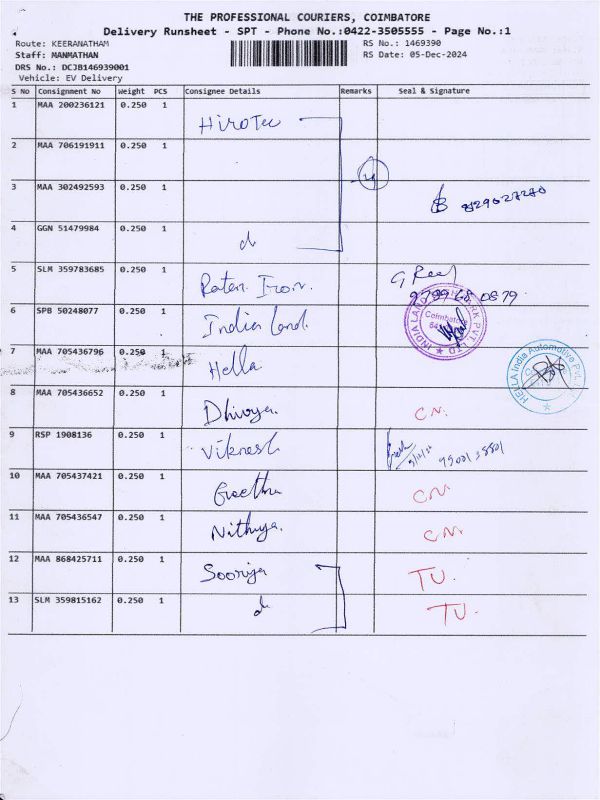 THE PROFESSIONAL COURIERS, COIMBATORE
Delivery Runsheet - SPT - Phone No.:0422-3505555 - Page No.:1
Route: KEERANATHAM RS No.: 1469390
Staff: MANMATHAN RS Date: 05-Dec-2024
DRS No.: DCJB146939001
Vehicle: EV Delivery
S No Consignment No Weight PCS Consignee Details Remarks Seal & Signature
1 MAA 200236121 0.250 1 Hirotec
2 MAA 706191911 0.250 1
3 MAA 302492593 0.250 1
4 GGN 51479984 0.250 1 d
5 SLM 359783685 0.250 1 Raten Iron.
6 SPB 50248077 0.250 1 India Land. Coimbatore
7 MAA 705436796 0.250 1 Hella HELLA India Automotive Pvt.
8 MAA 705436652 0.250 1 Dhivya. CN.
9 RSP 1908136 0.250 1 Viknesh
10 MAA 705437421 0.250 1 Geetha CN.
11 MAA 705436547 0.250 1 Nithya. CN.
12 MAA 868425711 0.250 1 Sooriya TU.
13 SLM 359815162 0.250 1 d TU.